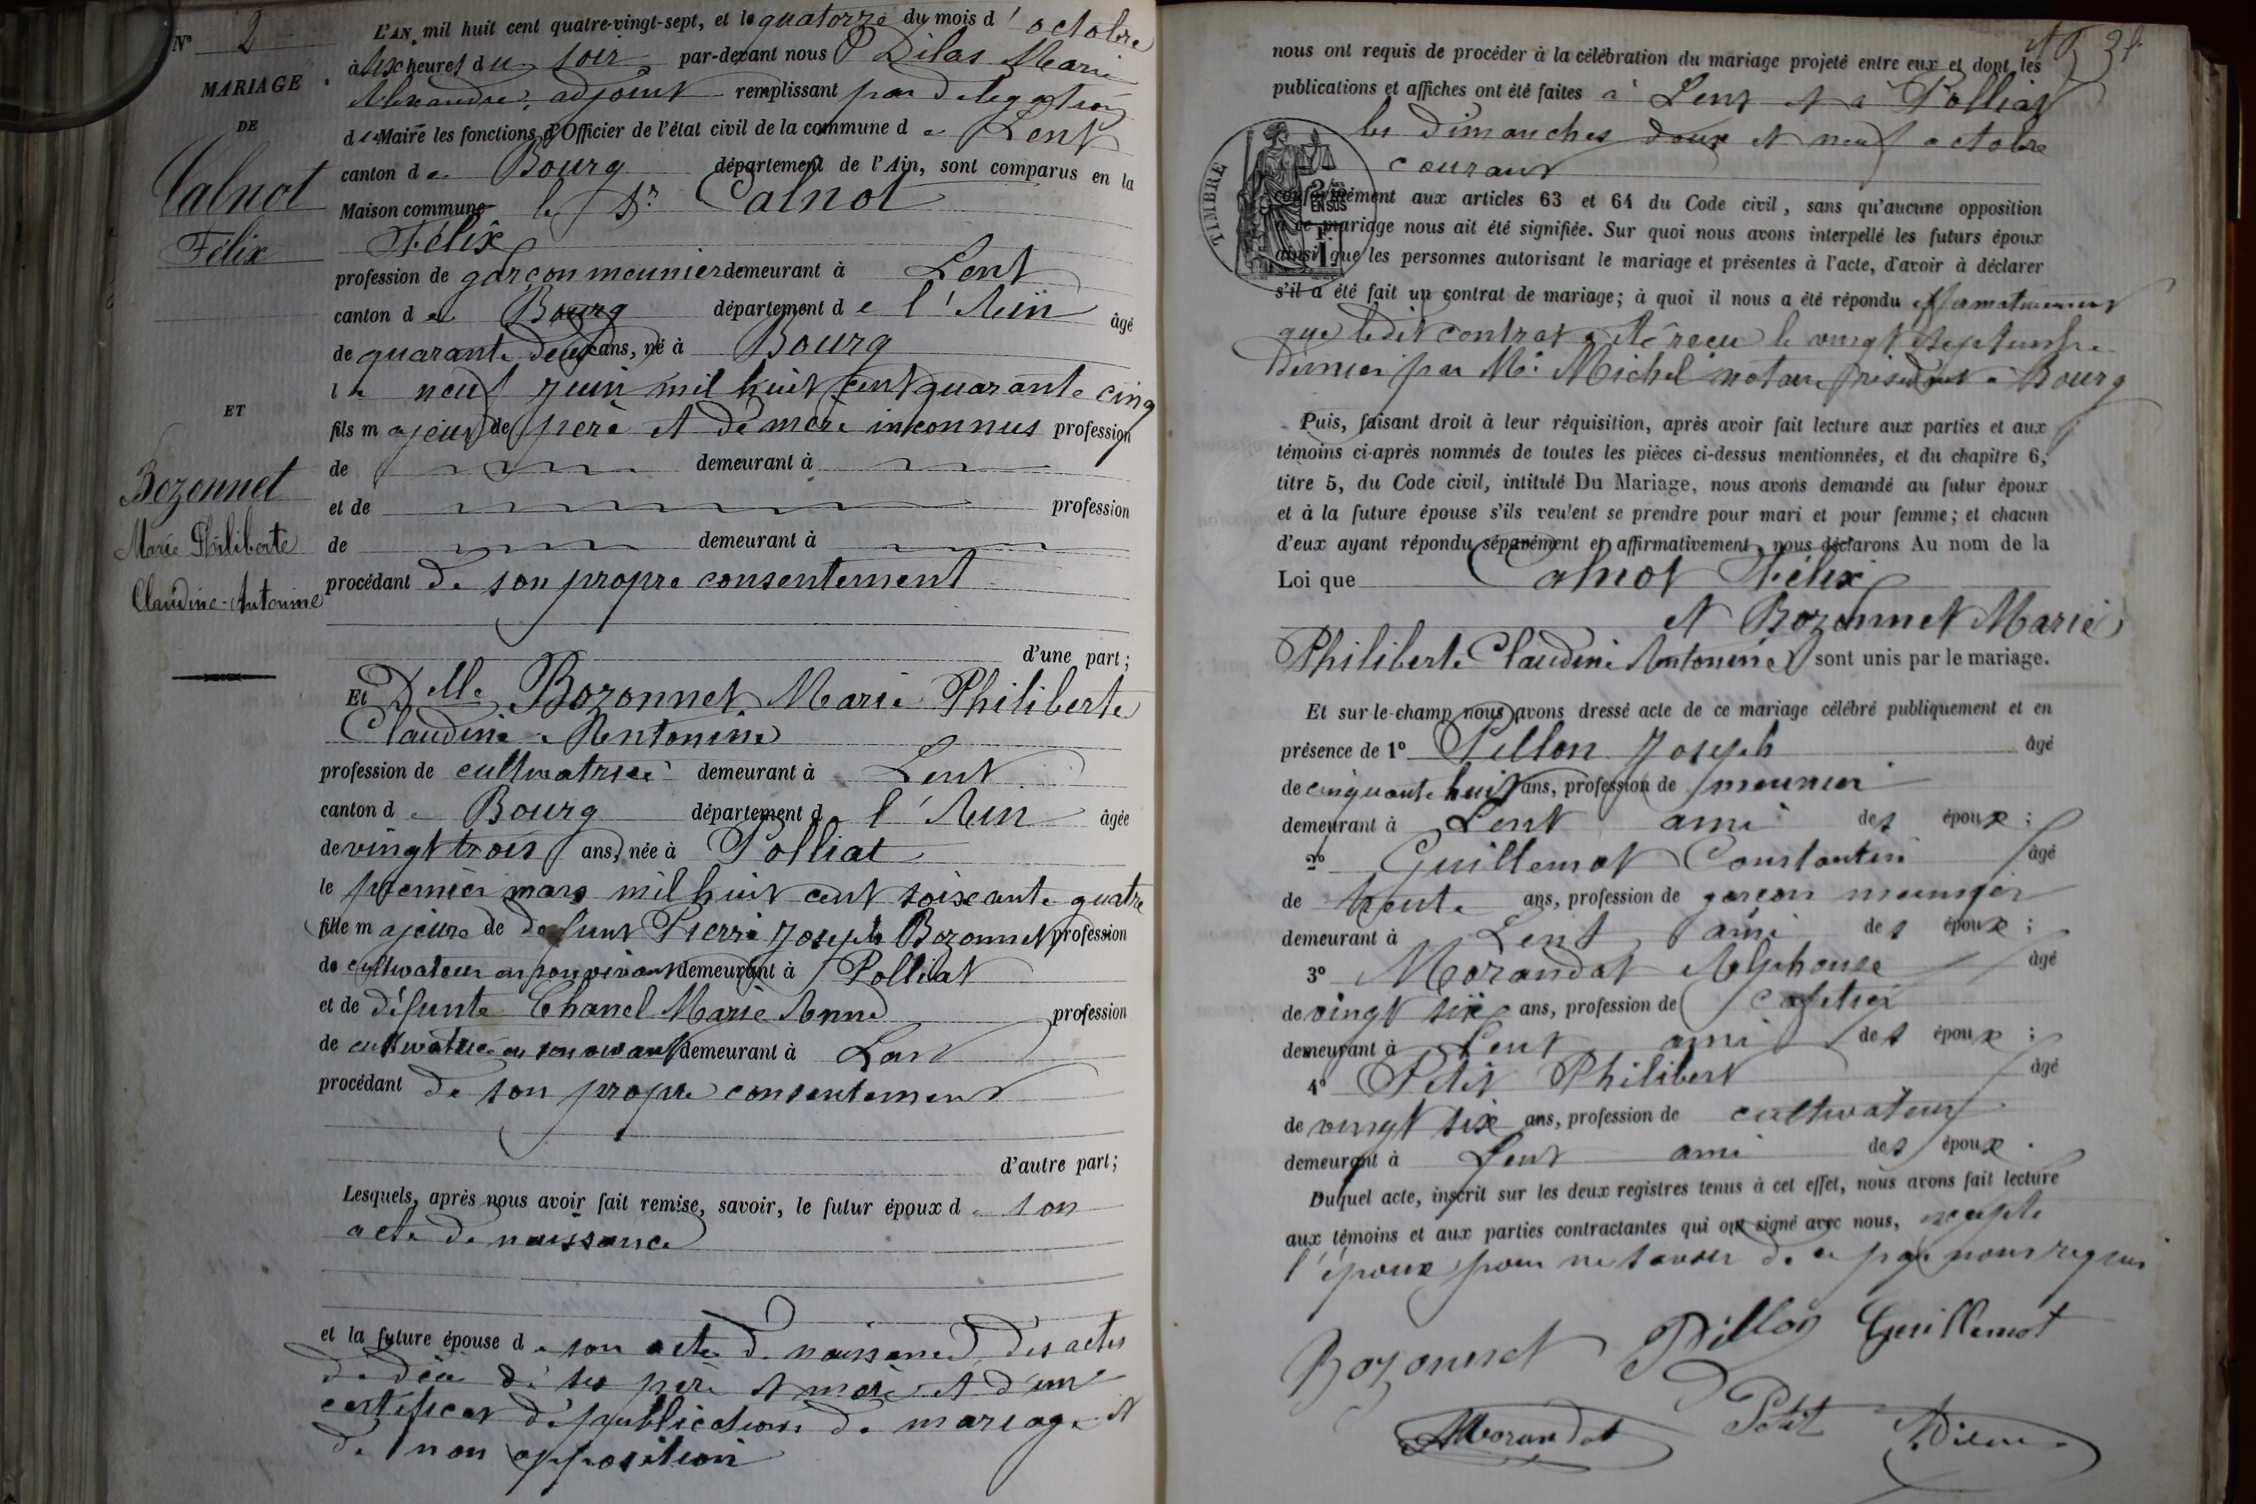 N° 2
MARIAGE
DE
Calnot
Félix
ET
Bozonnet
Marie Philiberte
Claudine-Antonine
L'AN mil huit cent quatre-vingt-sept, et le quatorze du mois d'octobre
à six heures du soir par-devant nous Dilas Marie
Alexandre, adjoint remplissant par délégation
du Maire les fonctions d'Officier de l'état civil de la commune de Lent
canton de Bourg département de l'Ain, sont comparus en la
Maison commune le Sr Calnot
Félix
profession de garçon meunier demeurant à Lent
canton de Bourg département de l'Ain âgé
de quarante deux ans, né à Bourg
le neuf juin mil huit cent quarante cinq
fils majeur de père et de mère inconnus profession
de demeurant à
et de profession
de demeurant à
procédant de son propre consentement
d'une part;
Et Delle Bozonnet Marie Philiberte
Claudine Antonine
profession de cultivatrice demeurant à Lent
canton de Bourg département de l'Ain âgée
de vingt trois ans, née à Polliat
le premier mars mil huit cent soixante quatre
fille majeure de defunt Pierre Joseph Bozonnet profession
de cultivateur en son vivant demeurant à Polliat
et de défunte Chanel Marie Anne profession
de cultivatrice en son vivant demeurant à Lent
procédant de son propre consentement
d'autre part;
Lesquels, après nous avoir fait remise, savoir, le futur époux de son
acte de naissance
et la future épouse de son acte de naissance, des actes
de décès de ses père et mère et d'un
certificat de publications de mariage et
de non opposition
nous ont requis de procéder à la célébration du mariage projeté entre eux et dont les
publications et affiches ont été faites à Lent et à Polliat
les dimanches deux et neuf octobre
courant
TIMBRE
EN SUS
conformément aux articles 63 et 64 du Code civil, sans qu'aucune opposition
à ce mariage nous ait été signifiée. Sur quoi nous avons interpellé les futurs époux
ainsi que les personnes autorisant le mariage et présentes à l'acte, d'avoir à déclarer
s'il a été fait un contrat de mariage; à quoi il nous a été répondu affirmativement
que ledit contrat a été reçu le vingt septembre
dernier par Me Michel notaire résidant à Bourg
Puis, faisant droit à leur réquisition, après avoir fait lecture aux parties et aux
témoins ci-après nommés de toutes les pièces ci-dessus mentionnées, et du chapitre 6,
titre 5, du Code civil, intitulé Du Mariage, nous avons demandé au futur époux
et à la future épouse s'ils veulent se prendre pour mari et pour femme; et chacun
d'eux ayant répondu séparément et affirmativement, nous déclarons Au nom de la
Loi que Calnot Félix
et Bozonnet Marie
Philiberte Claudine Antonine sont unis par le mariage.
Et sur-le-champ nous avons dressé acte de ce mariage célébré publiquement et en
présence de 1° Pillon Joseph âgé
de cinquante huit ans, profession de meunier
demeurant à Lent ami des époux;
2° Guillemot Constantin âgé
de trente ans, profession de garçon meunier
demeurant à Lent ami des époux;
3° Morandat Alphonse âgé
de vingt six ans, profession de cafetier
demeurant à Lent ami des époux;
4° Petit Philibert âgé
de vingt six ans, profession de cultivateur
demeurant à Lent ami des époux.
Duquel acte, inscrit sur les deux registres tenus à cet effet, nous avons fait lecture
aux témoins et aux parties contractantes qui ont signé avec nous, excepté
l'époux pour ne savoir de ce par nous requis
Bozonnet Pillon Guillemot
Morandat Petit Dilas